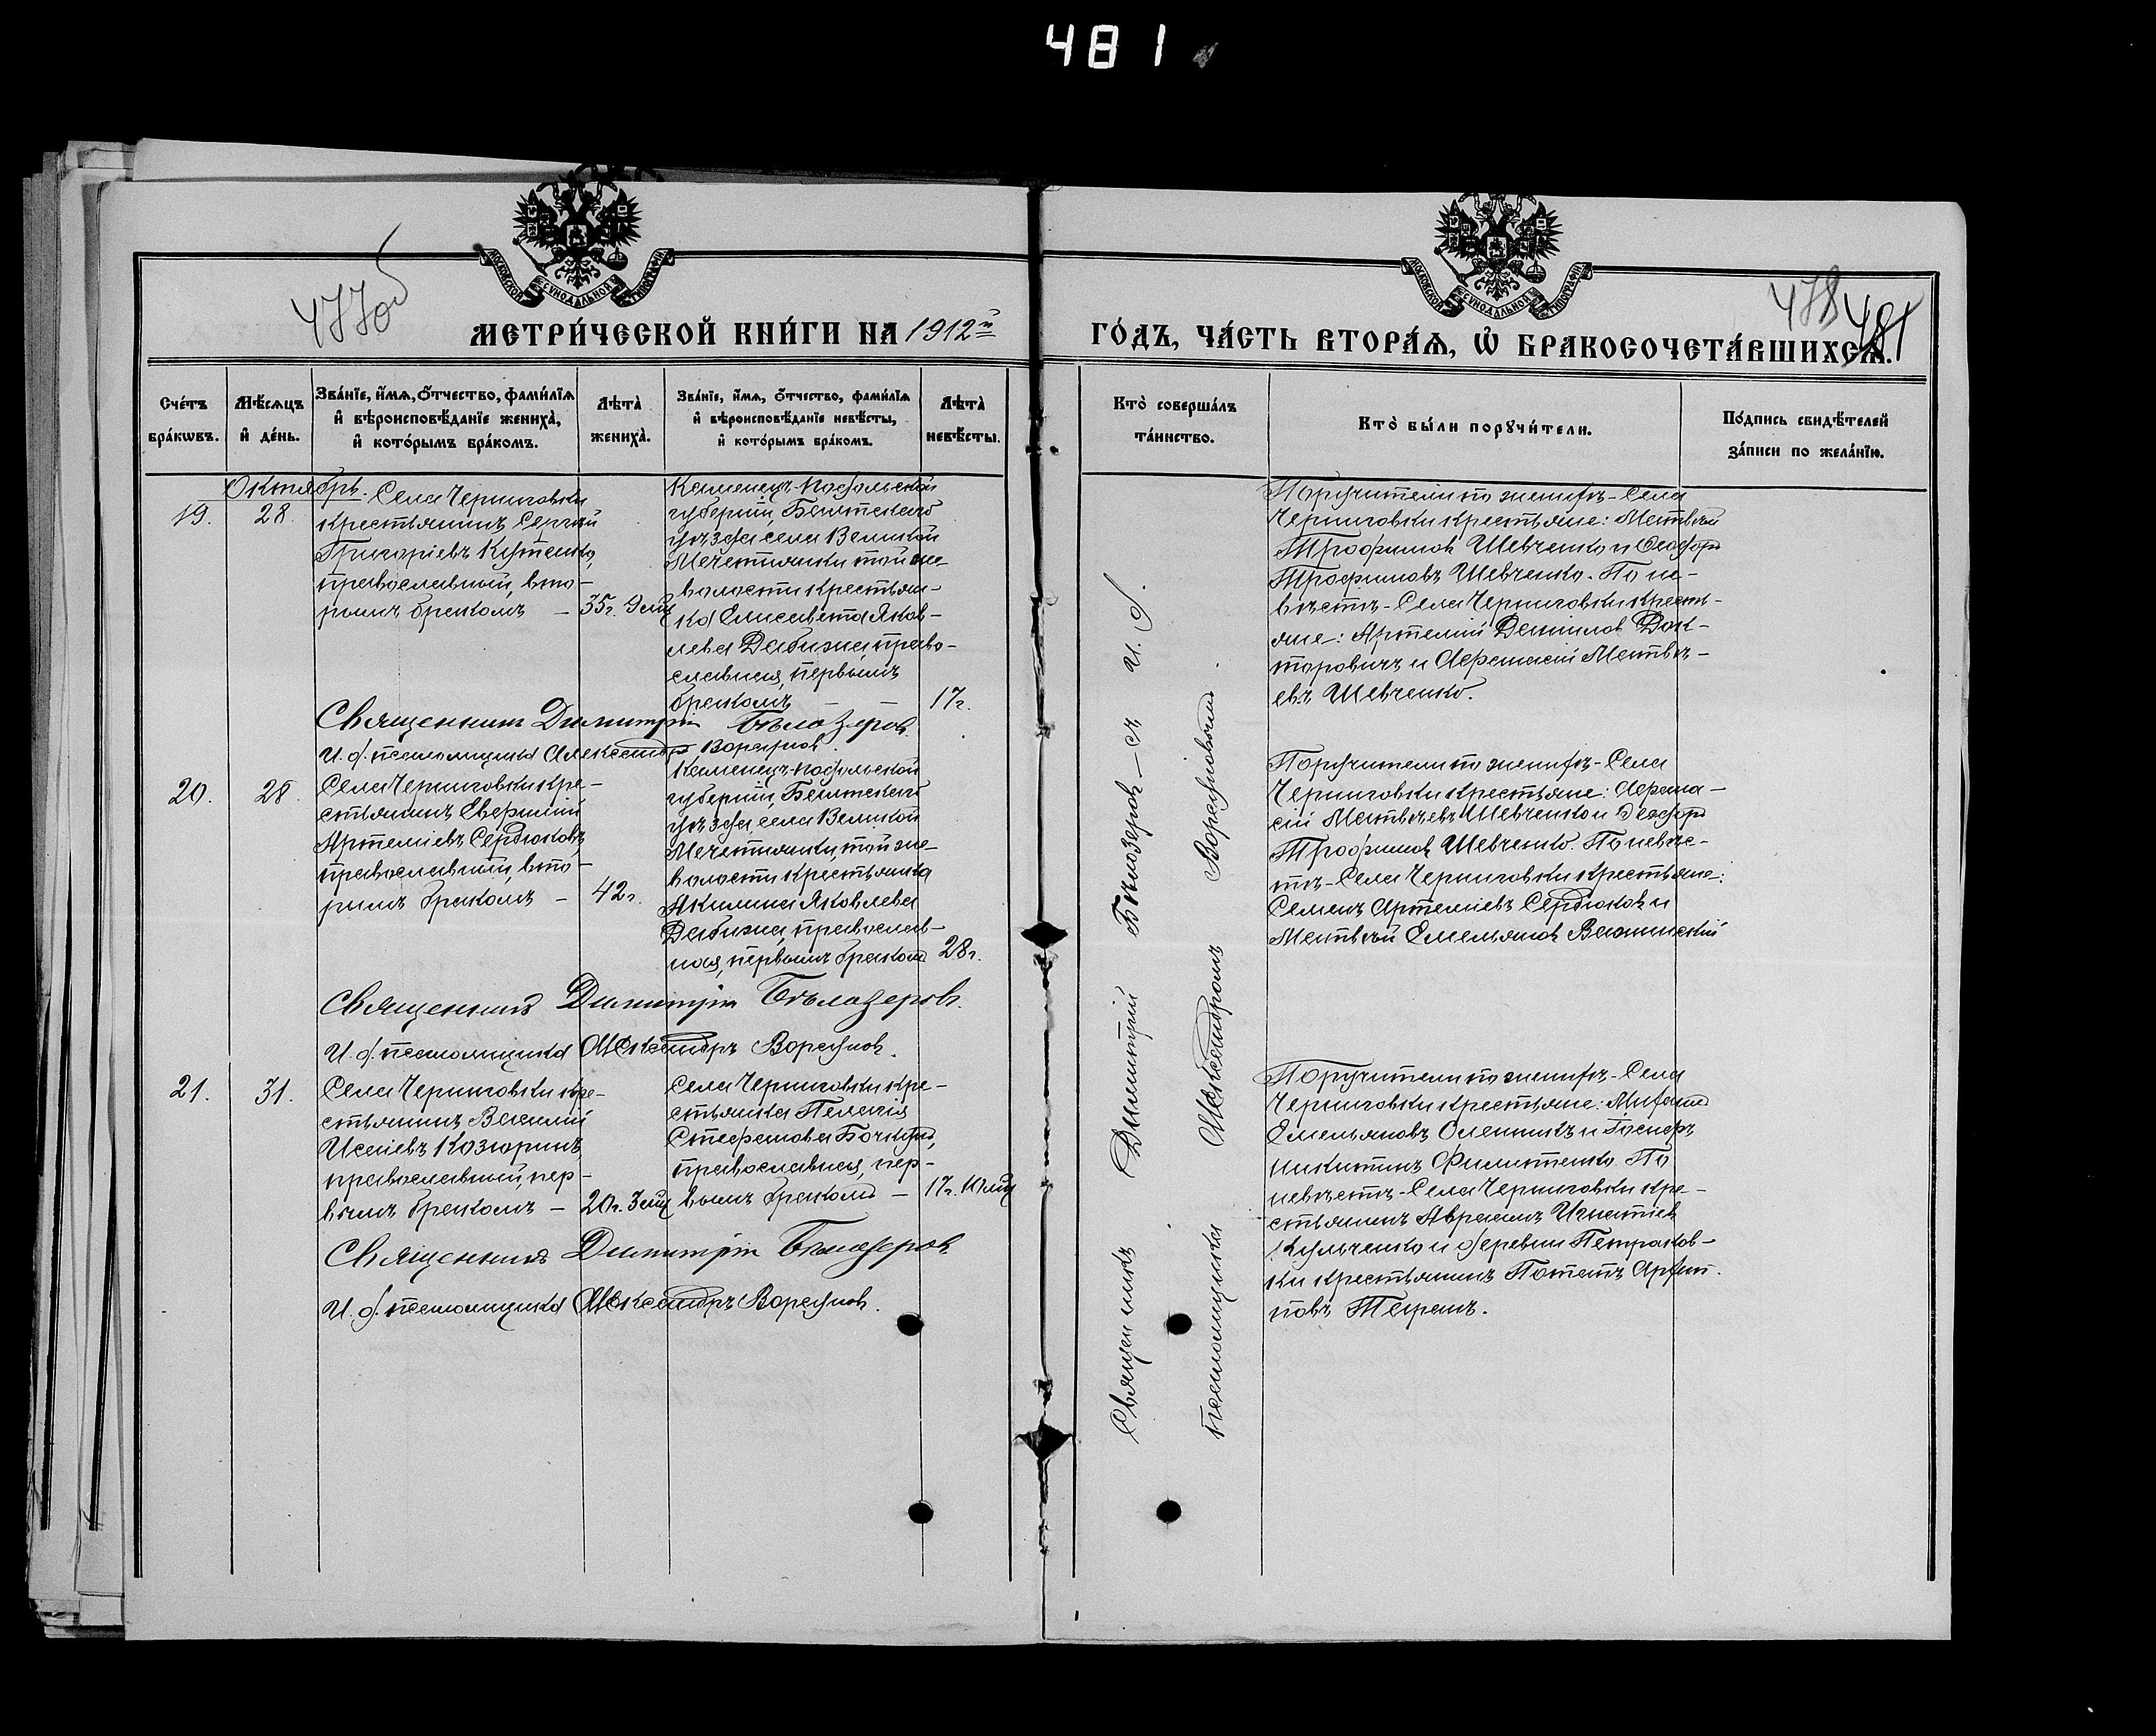 481
477об
478
481
МОСКОВСКОЙ СѴНОДАЛЬНОЙ ТИПОГРАФІИ
МОСКОВСКОЙ СѴНОДАЛЬНОЙ ТИПОГРАФІИ
МЕТРИ́ЧЕСКОЙ КНИ́ГИ НА 1912й
ГО́ДЪ, ЧА́СТЬ ВТОРА́Ѧ, Ѽ БРАКОСОЧЕТА́ВШИХСѦ.
Сче́тъ бра́кѡвъ.
Мѣ́сяцъ и҆ де́нь.
Зва́нїе, и҆́мѧ, ѻ҆́тчество, фами́лїѧ и҆ вѣроисповѣ́данїе жениха̀, и҆ кото́рымъ бра́комъ.
Лѣта̀ жениха̀.
Зва́нїе, и҆́мѧ, ѻ҆́тчество, фами́лїѧ и҆ вѣроисповѣ́данїе невѣ́сты, и҆ кото́рымъ бра́комъ.
Лѣта̀ невѣ́сты.
Кто̀ соверша́лъ та́инство.
Кто̀ бы́ли порꙋчи́тели.
По́дпись свидѣ́телей за́писи по жела́нїю.
Октябрь.
19.
28.
Села Черниговки
крестьянинъ Сергѣй
Григоріевъ Кутенко,
православный, вто-
рымъ бракомъ —
35г. 9 мц
Каменецъ-Подольской
губерніи, Балтскаго
уѣзда села Великой
Мечетнянки той же
волости крестьян-
ка Елисавета Яков-
лева Дабижа, право-
славная, первымъ
бракомъ —
17г.
Поручители по женихѣ - Села
Черниговки крестьяне: Матвѣй
Трофимовъ Шевченко и Ѳеодоръ
Трофимовъ Шевченко. По не-
вѣстѣ - Села Черниговки кресть-
яне: Артемій Даниловъ Док-
торовичъ и Аѳанасій Матвѣ-
евъ Шевченко.
Священникъ Димитрій Бѣлозеровъ.
И. д. псаломщика Александръ Ворсуновъ.
20.
28
Села Черниговки кре-
стьянинъ Евѳимій
Артеміевъ Сердюковъ
православный, вто-
рымъ бракомъ —
42г.
Каменецъ-Подольской
губерніи, Балтскаго
уѣзда, села Великой
Мечетнянки, той же
волости крестьянка
Акилина Яковлева
Дабижа, православ-
ная, первымъ бракомъ
28г.
Поручители по женихѣ - Села
Черниговки крестьяне: Аѳана-
сій Матвѣевъ Шевченко и Ѳеодоръ
Трофимовъ Шевченко. По невѣс-
тѣ - Села Черниговки крестьяне:
Семенъ Артеміевъ Сердюковъ и
Матвѣй Емельяновъ
Священникъ Димитрій Бѣлозеровъ.
И. д. псаломщика Александръ Ворсуновъ.
21.
31.
Села Черниговки кре-
стьянинъ Василій
Исаіевъ Козюринъ
православный, пер-
вымъ бракомъ —
20г. 3 мц
Села Черниговки кре-
стьянка Пелагія
Стефанова Бочкуръ,
православная, пер-
вымъ бракомъ —
17г. 10 мц
Поручители по женихѣ - Села
Черниговки крестьяне: Михаилъ
Емельяновъ Олейникъ и
Никитинъ Филипенко. По
невѣстѣ - Села Черниговки кре-
стьянинъ Авраамъ Игнатіевъ
Кульченко и деревни Петраков-
ки крестьянинъ Потапъ Архип-
повъ Таранъ.
Священникъ Димитрій Бѣлозеровъ
И. д. псаломщика Александръ Ворсуновъ.
Священникъ Димитрій Бѣлозеровъ — съ И. д.
псаломщика Александромъ Ворсуновымъ.